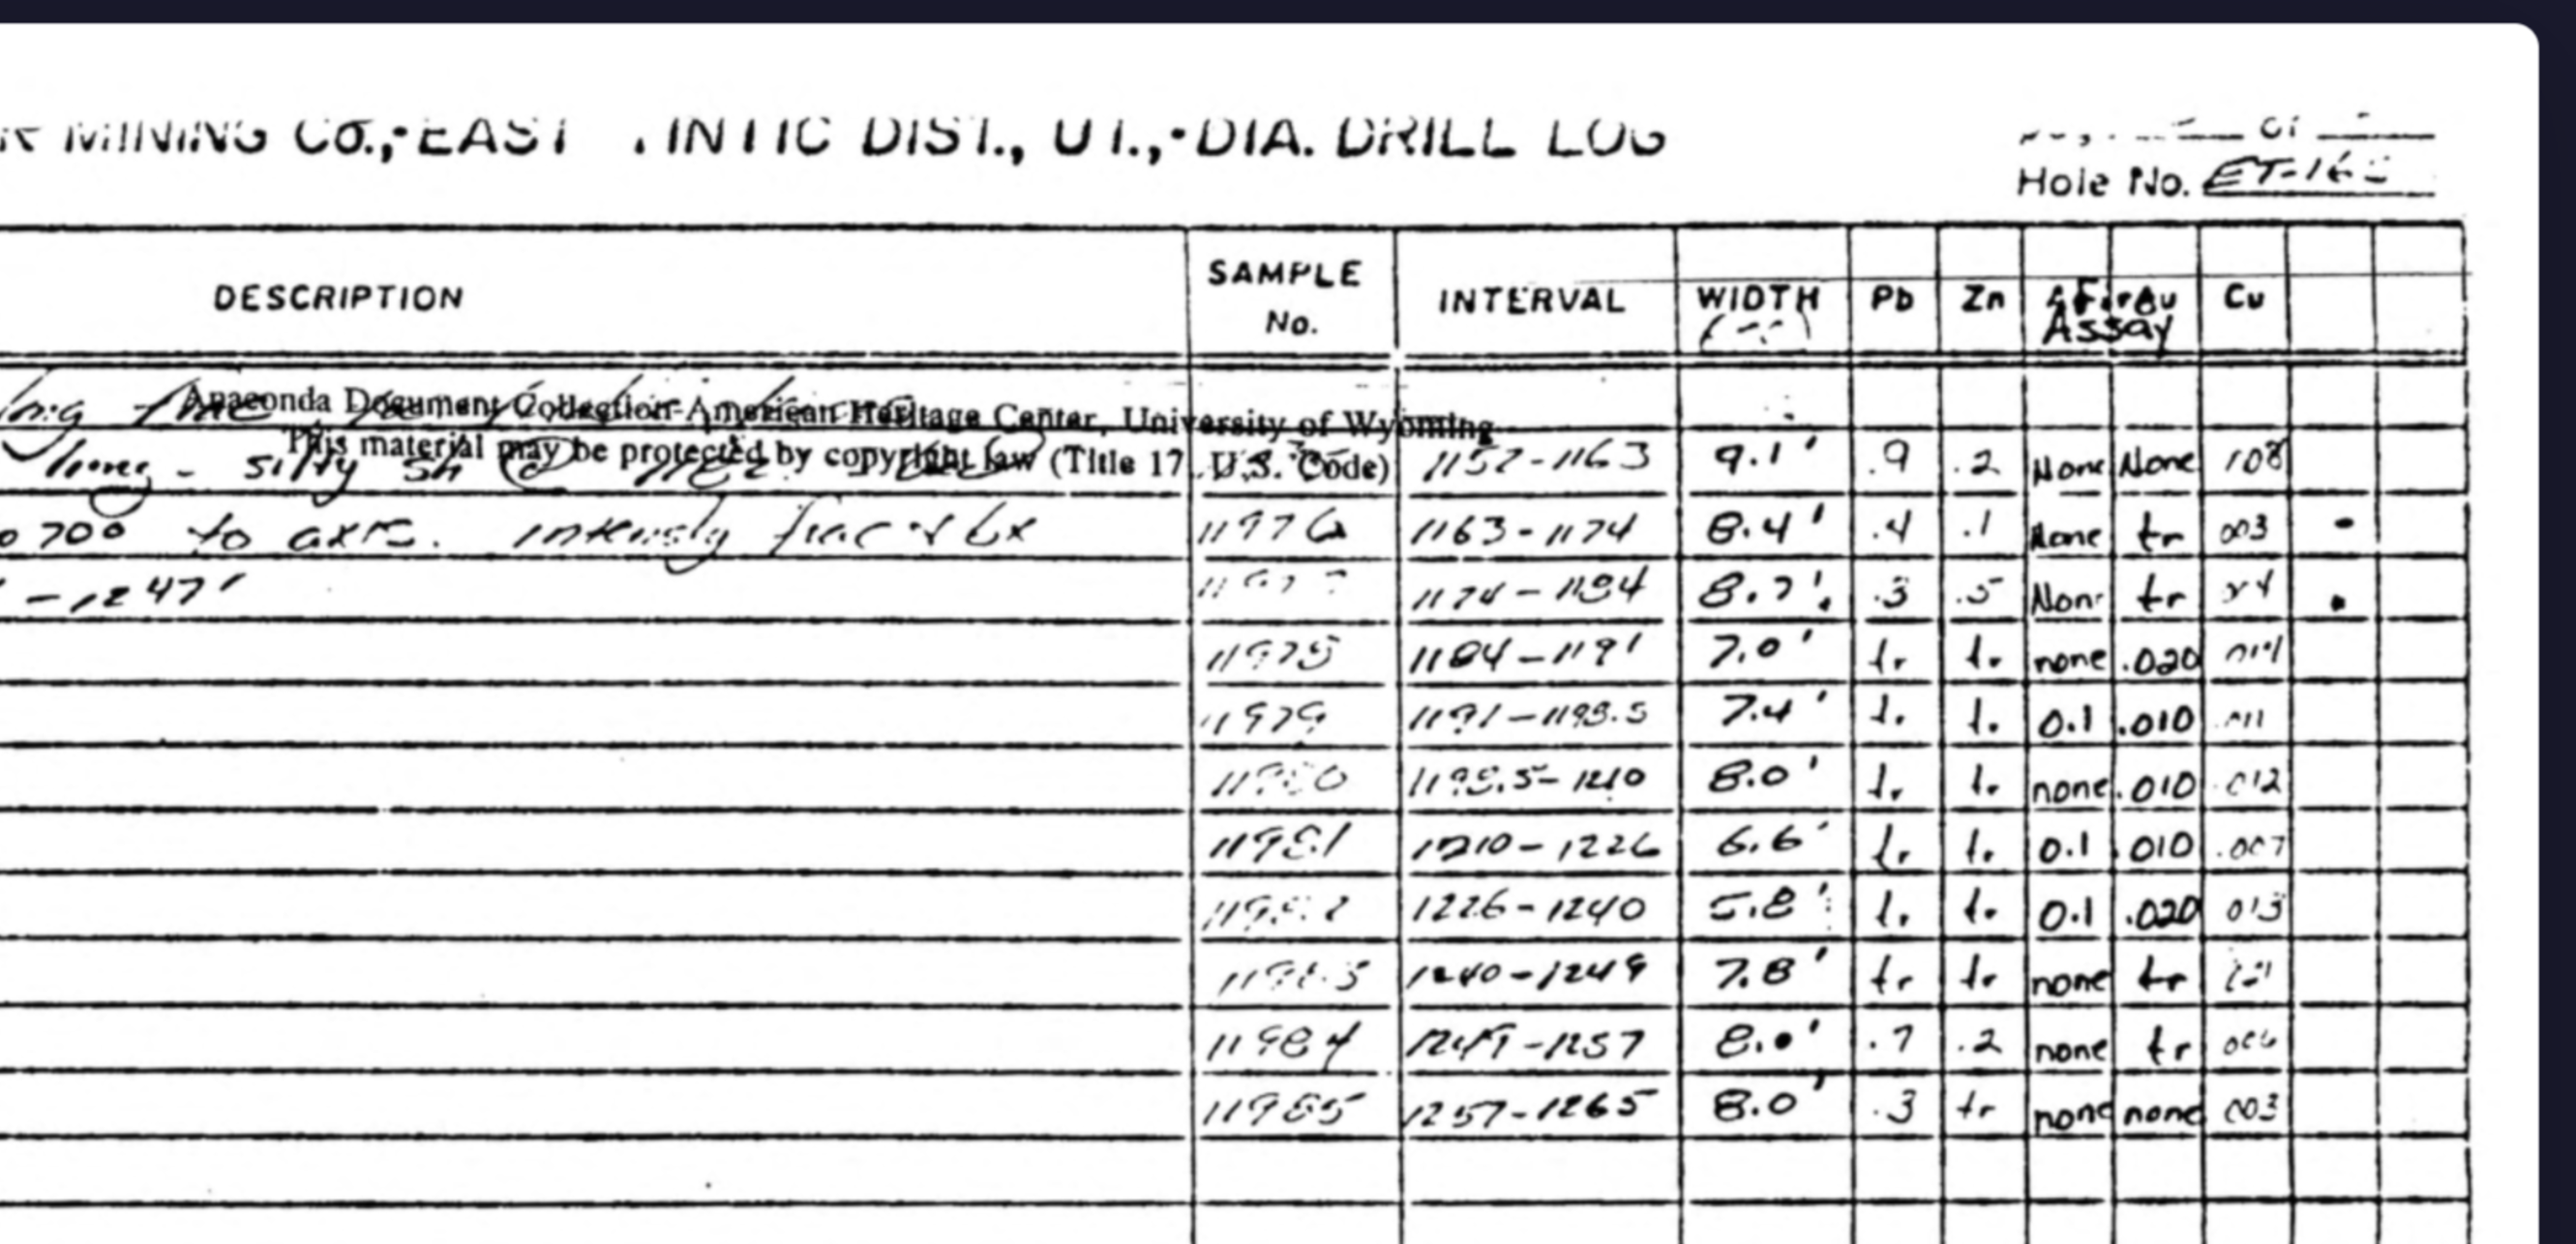 MINING CO.,-EAST TINTIC DIST., UT.,-DIA. DRILL LOG
Hole No. ET-16
DESCRIPTION SAMPLE No. INTERVAL WIDTH Pb Zn Fire Assay Au Cu
Anaconda Document Collection-American Heritage Center, University of Wyoming
This material may be protected by copyright law (Title 17 U.S. Code)
silty sh 1152-1163 9.1' .9 .2 None None 108
70° to axis. intensly frac & bx 11976 1163-1174 8.4' .4 .1 None tr 003
-1247' 1174-1184 8.7' .3 .5 None tr
11978 1184-1191 7.0' tr tr none .020 014
11979 1191-1198.5 7.4' tr tr 0.1 .010 .011
11980 1198.5-1210 8.0' tr tr none .010 .012
11981 1210-1226 6.6' tr tr 0.1 .010 .007
11982 1226-1240 5.8' tr tr 0.1 .020 013
11983 1240-1249 7.8' tr tr none tr
11984 1249-1257 8.0' .7 .2 none tr 006
11985 1257-1265 8.0' .3 tr none none 003